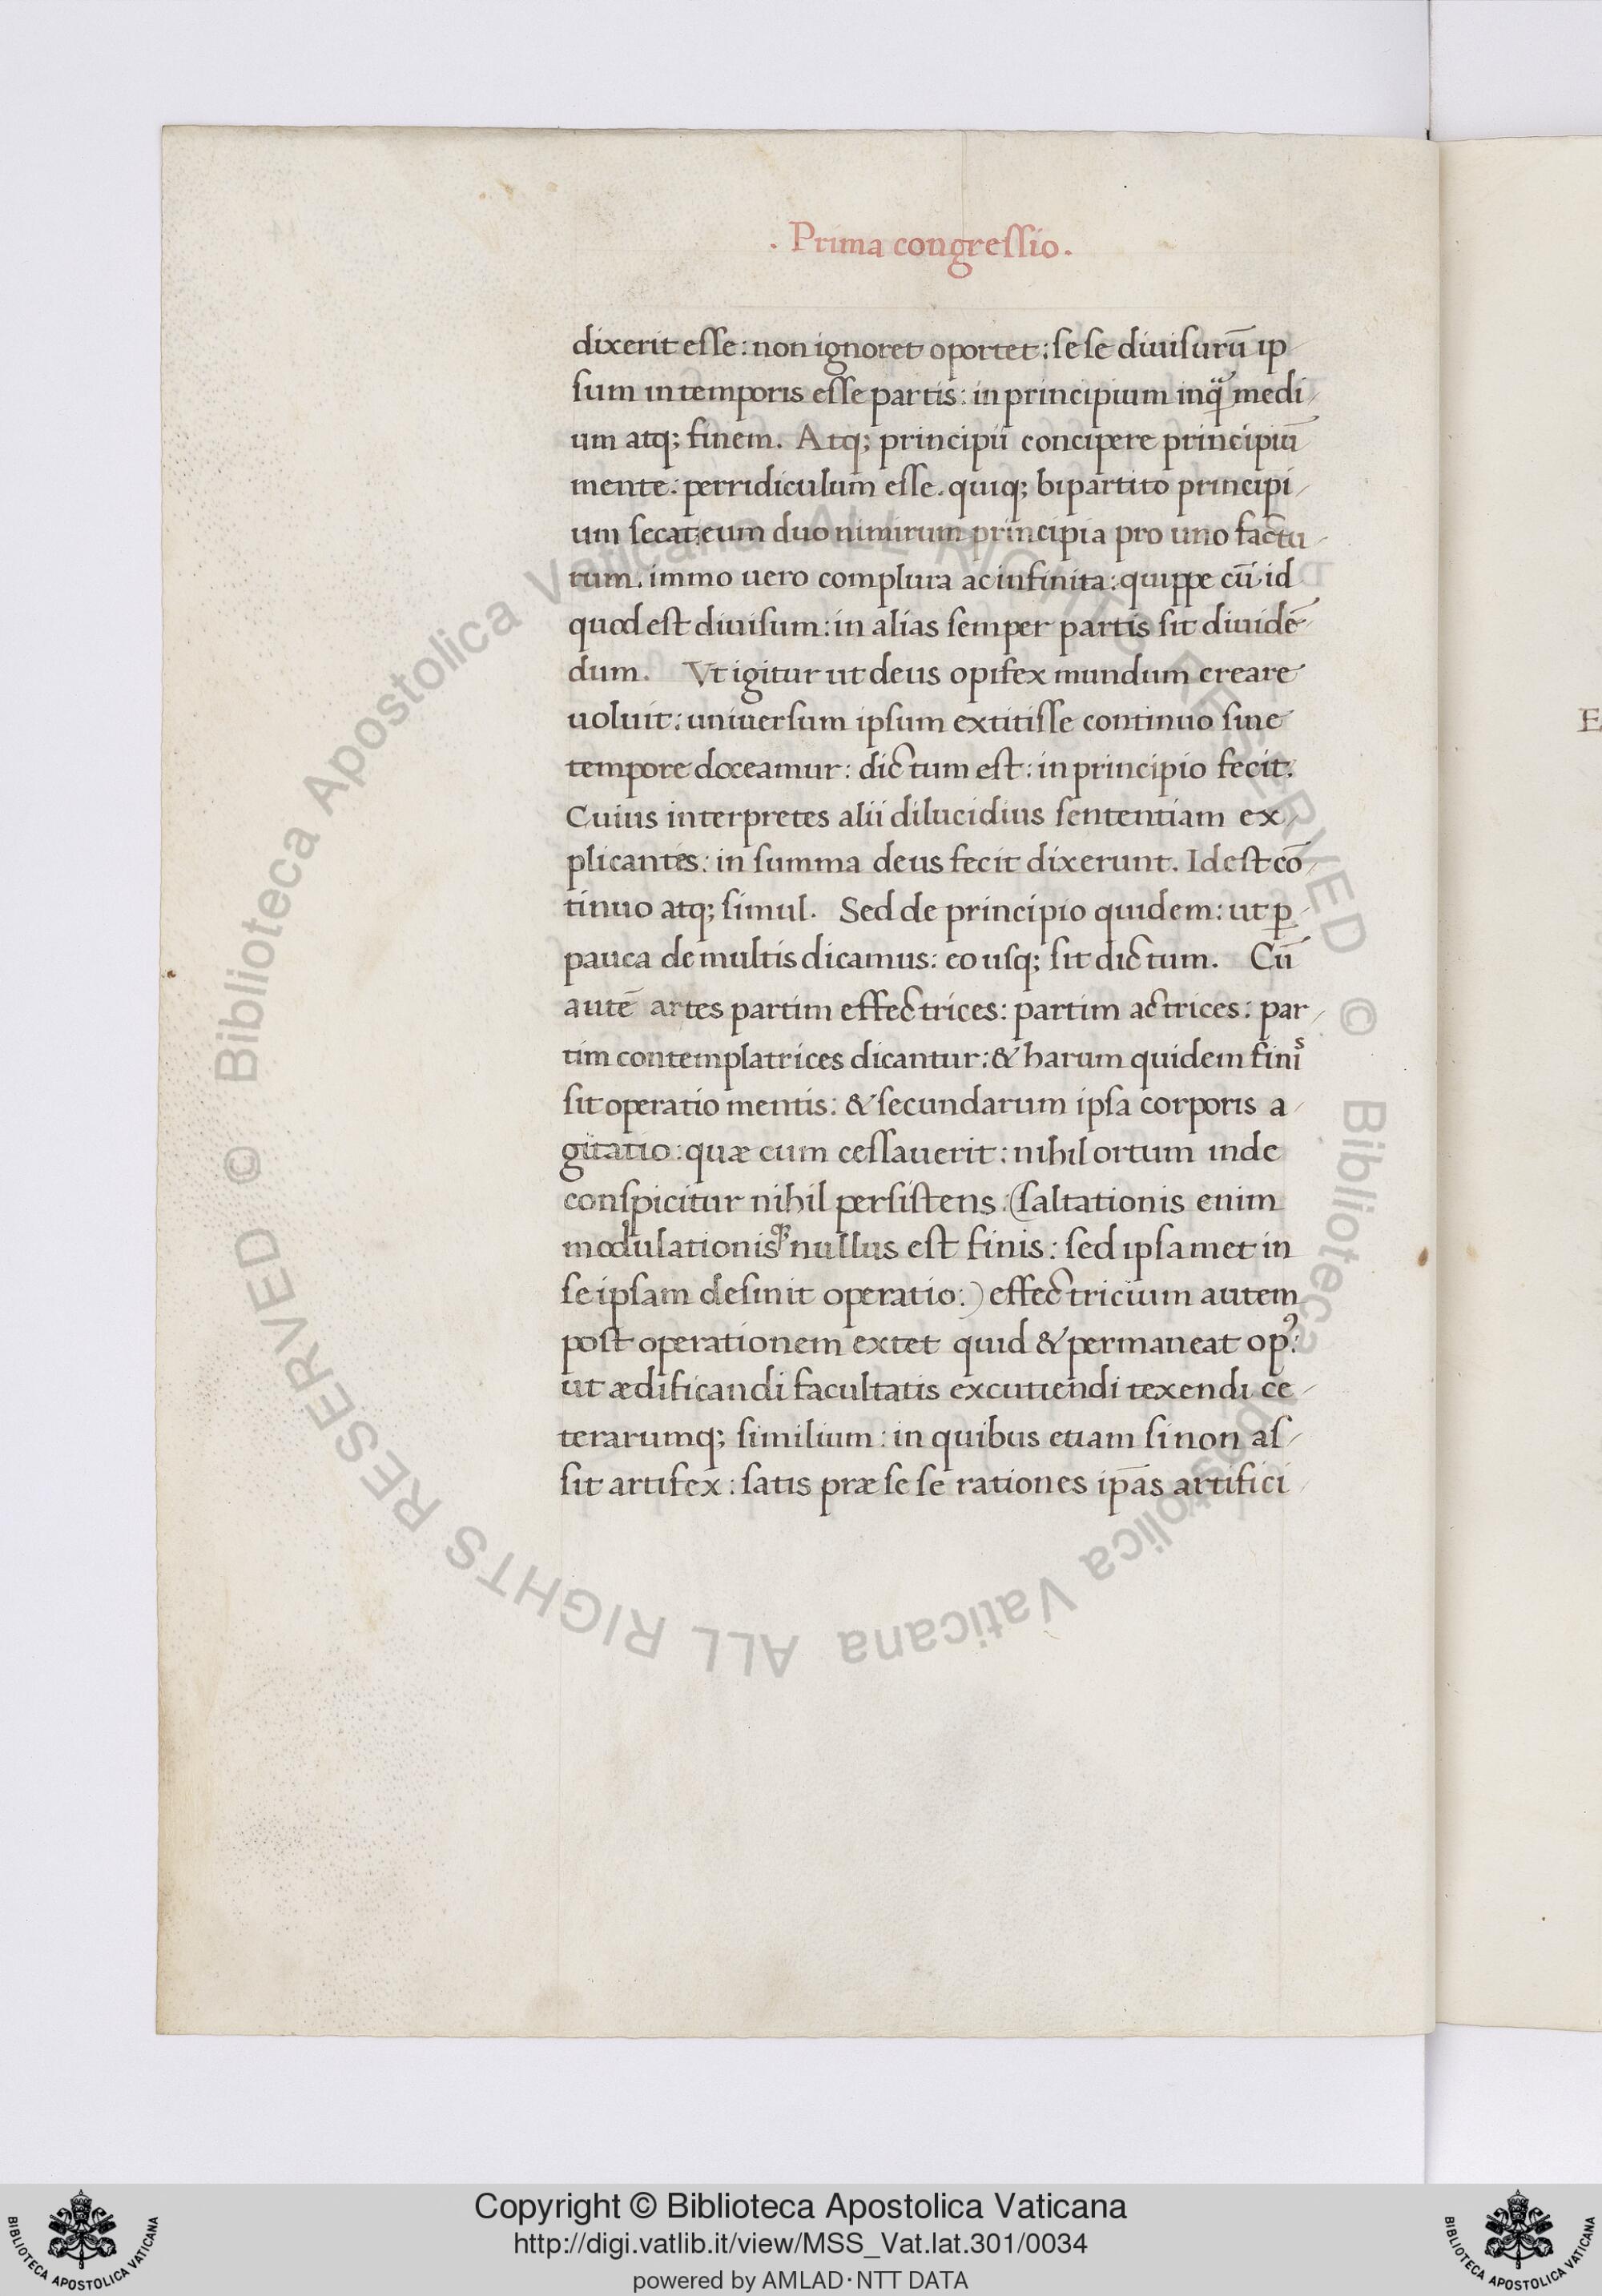 . Prima congreſſio.
dixerit eſſe: non ignoret oportet: ſe ſe diuiſurū ip
ſum in temporis eſſe partis: in principium inq̈ medi
um atq; finem. Atq; principii concipere principiū
mente: perridiculum eſſe. quiq; bipartito principi
um ſecat: eum duo nimirum principia pro uno factu
rum. immo uero complura ac infinita: quippe cū id
quod eſt diuiſum: in alias ſemper partis ſit diuidē
dum. Vt igitur ut deus opifex mundum creare
uoluit: uniuerſum ipſum extitiſſe continuo ſine
tempore doceamur: dictum eſt: in principio fecit.
Cuius interpretes alii dilucidius ſententiam ex
plicantes: in ſumma deus fecit dixerunt. Id eſt cō
tinuo atq; ſimul. Sed de principio quidem: ut ꝑ
pauca de multis dicamus: eo uſq; ſit dictum. Cū
autē artes partim effectrices: partim actrices: par
tim contemplatrices dicantur: & harum quidem finis
ſit operatio mentis: & ſecundarum ipſa corporis a
gitatio: quæ cum ceſſauerit: nihil ortum inde
conſpicitur nihil perſiſtens: (ſaltationis enim
modulationisq; nullus eſt finis: ſed ipſamet in
ſe ipſam deſinit operatio:) effectricium autem
poſt operationem extet quid & permaneat opꝰ:
ut ædificandi facultatis excutiendi texendi ce
terarumq; ſimilium: in quibus etiam ſi non aſ
ſit artifex: ſatis præ ſe ſe rationes ip̄as artifici
E
© Biblioteca Apostolica Vaticana ALL RIGHTS RESERVED © Biblioteca Apostolica Vaticana ALL RIGHTS RESERVED
Copyright © Biblioteca Apostolica Vaticana
http://digi.vatlib.it/view/MSS_Vat.lat.301/0034
powered by AMLAD·NTT DATA
BIBLIOTECA APOSTOLICA VATICANA
BIBLIOTECA APOSTOLICA VATICANA